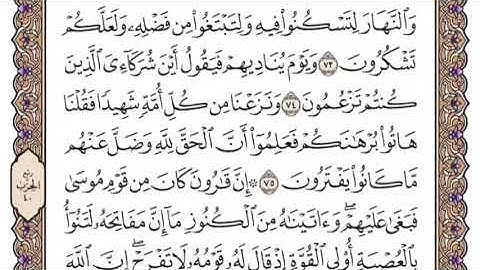 وَٱلنَّهَارَ لِتَسْكُنُوا۟ فِيهِ وَلِتَبْتَغُوا۟ مِن فَضْلِهِۦ وَلَعَلَّكُمْ
تَشْكُرُونَ ٧٣ وَيَوْمَ يُنَادِيهِمْ فَيَقُولُ أَيْنَ شُرَكَآءِىَ ٱلَّذِينَ
كُنتُمْ تَزْعُمُونَ ٧٤ وَنَزَعْنَا مِن كُلِّ أُمَّةٍ شَهِيدًا فَقُلْنَا
هَاتُوا۟ بُرْهَٰنَكُمْ فَعَلِمُوٓا۟ أَنَّ ٱلْحَقَّ لِلَّهِ وَضَلَّ عَنْهُم
مَّا كَانُوا۟ يَفْتَرُونَ ٧٥ ۞ إِنَّ قَٰرُونَ كَانَ مِن قَوْمِ مُوسَىٰ
فَبَغَىٰ عَلَيْهِمْ ۖ وَءَاتَيْنَٰهُ مِنَ ٱلْكُنُوزِ مَآ إِنَّ مَفَاتِحَهُۥ لَتَنُوٓأُ
بِٱلْعُصْبَةِ أُو۟لِى ٱلْقُوَّةِ إِذْ قَالَ لَهُۥ قَوْمُهُۥ لَا تَفْرَحْ ۖ إِنَّ ٱللَّهَ
ربع
الحزب
٤٠